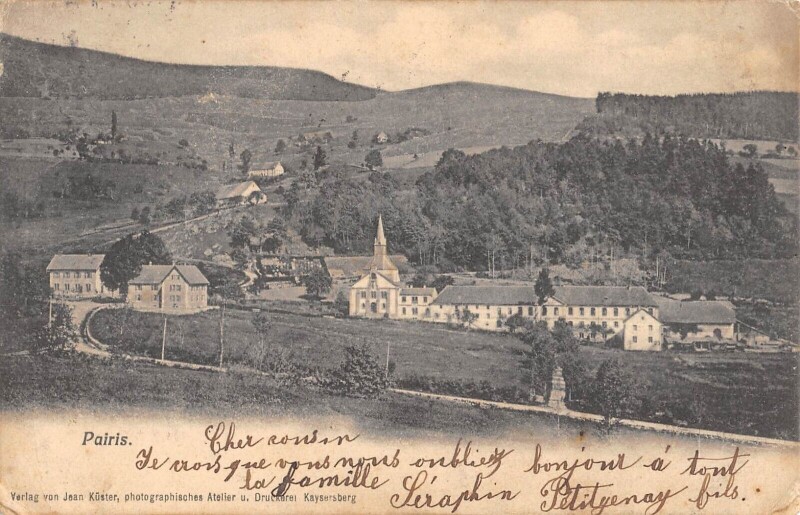 Pairis.
Cher cousin
Je crois que vous nous oubliez bonjour á tout
la famille Séraphin Petitgenay fils.
Verlag von Jean Küster, photographisches Atelier u. Druckerei Kaysersberg